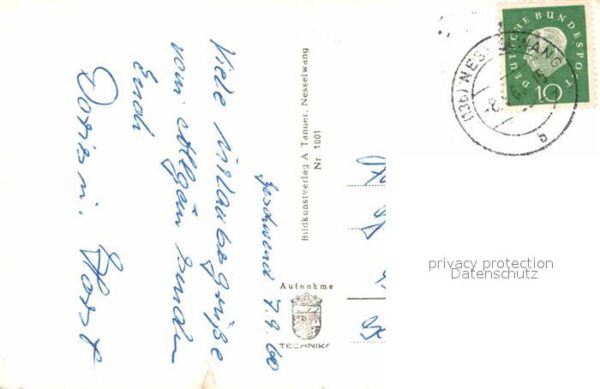 Geschwend 7.9.60
Viele Urlaubsgrüße
vom Allgäu senden
Euch
Doris u. Horst
Bildkunstverlag A. Tanner, Nesselwang
Nr. 1001
Aufnahme
TECHNIK
DEUTSCHE BUNDESPOST
10
(13b) NESSELWANG
b
privacy protection
Datenschutz